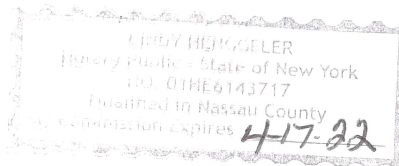 CINDY HENGGELER
Notary Public - State of New York
NO. 01HE6143717
Qualified in Nassau County
Commission Expires 4-17-22